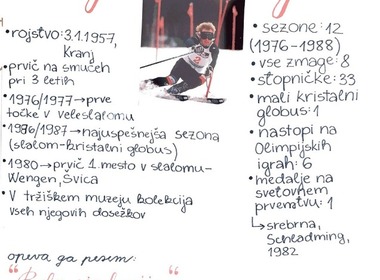 • rojstvo: 3.1.1957,
Kranj
• prvič na smučeh
pri 3 letih
• 1976/1977 → prve
točke v veleslalomu
• 1986/1987 → najuspešnejša sezona
(slalom-kristalni globus)
• 1980 → prvič 1. mesto v slalomu-
Wengen, Švica
• V tržiškem muzeju kolekcija
vseh njegovih dosežkov
opeva ga pesem:
• sezone: 12
(1976-1988)
• vse zmage: 8
• stopničke: 33
• mali kristalni
globus: 1
• nastopi na
Olimpijskih
igrah: 6
• medalje na
svetovnem
prvenstvu: 1
↳ srebrna,
Schladming,
1982